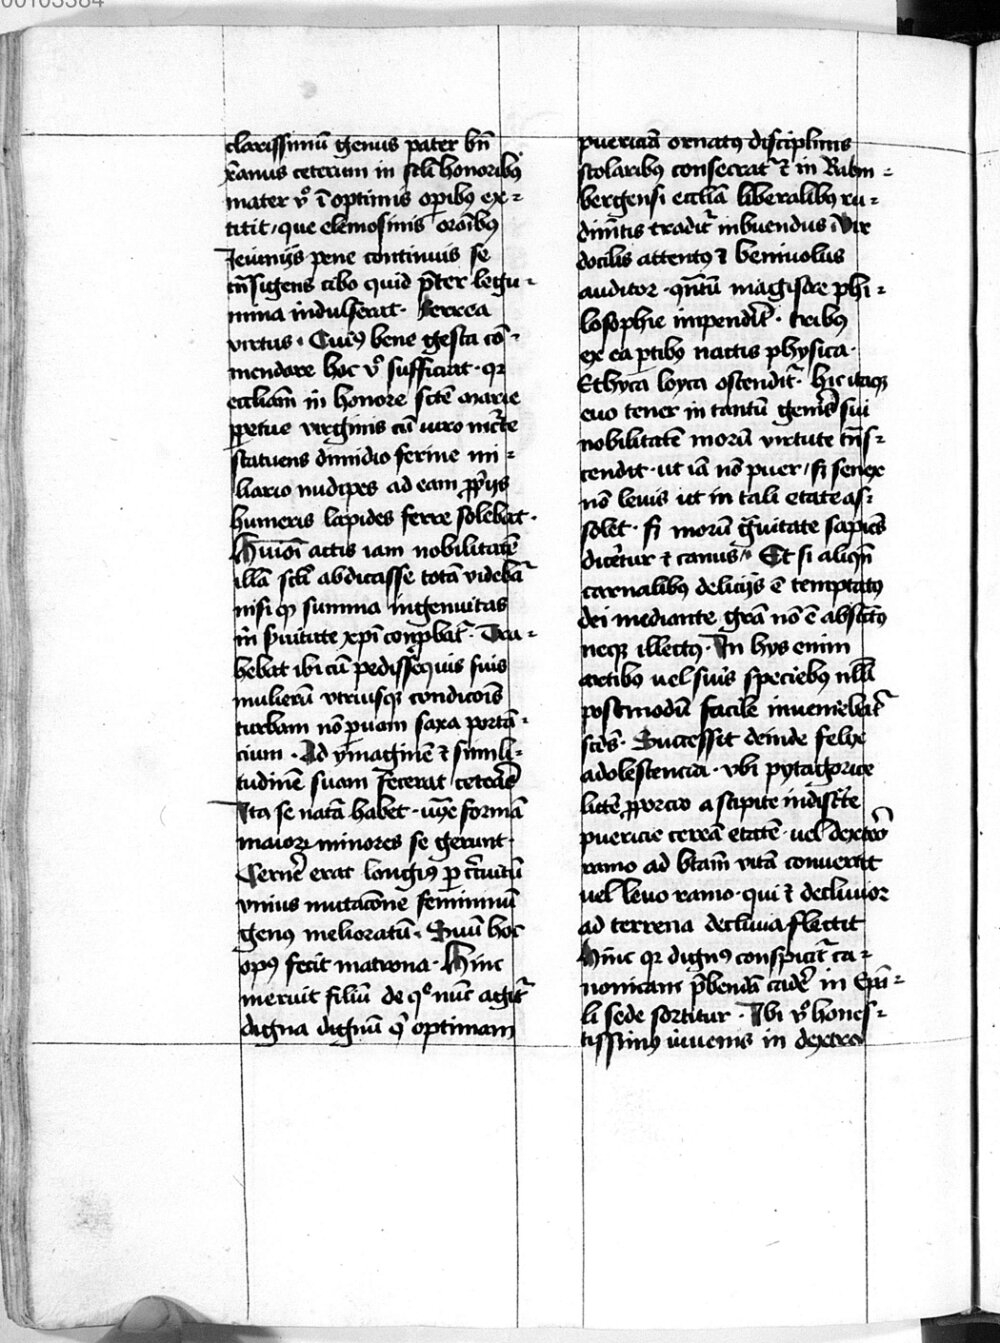 00103384
clarissimū genus pater bn̄
xp̄ianus ceterum in scl̄i honoribꝰ
mater vº ī optimis opibꝰ ex-
titit, que elemosinis or̄oībꝰ
Jeiunijs pene continuis se
cibo quid p̄ter legu-
mina indulserat. ferrea
virtus. Cuiꝰ bene gesta cō-
mendare hoc vº sufficiat. qr
eccl̄iam in honore sct̄e marie
ꝑpetue virginis cū viro
statuens dimidio ferme mi-
liario nudipes ad eam ꝓp̄ijs
humeris lapides ferre solebat.
Huiōi actis iam nobilitatē
illā scl̄i abdicasse totā videbat̄
nisi qꝫ summa ingenuitas
in ẜuitute xp̄i conprobat̄. Tra-
hebat ibi cū pedissequis suis
mulierū vtriusqꝫ condicōis
turbam nō ꝑuam saxa portā-
cium. Ad ymaginē ⁊ simili-
tudinē suam fecerat ceteras
Ita se natā habet. iuxe formā
maiorꝝ minores se gerunt
Cerner̄ erat longiꝰ
vnius mutacōne femininū
genꝰ melioratū. Suū hoc
opꝰ fecit matrona. Hinc
meruit filiū de qº nūc agit̄
digna dignū optimam
puericiā ornatꝰ disciplinis
scolaribꝰ consecrat̄ ⁊ in Babin-
bergensi eccl̄ia liberalibꝰ ru-
dimētis tradit̄ inbuendus. Vir
docilis attentꝰ ⁊ beniuolus
auditor. qn̄tū magistre phi-
losophie inpendit̄. tribꝰ
ex ea ꝑtibꝰ nattis physica.
Ethyca loyca ostendit̄. Hic itaqꝫ
euo tener in tantū gen̄is sui
nobilitatē morū virtute tn̄s-
cendit. ut iā nō puer, sꝫ senex
nō leuis ut in tali etate as-
solet. sꝫ morū g̃uitate sapiēs
dicer̄tur ⁊ canus. Et si aliqn̄
carnalibꝰ delicijs ē temptatꝰ
dei mediante gr̄a nō ē abstctꝰ
neqꝫ illectꝰ. In hys enim
artibꝰ uel suis speciebꝰ null̄i
postmodū facile inueniebat̄
scd̄s. Successit deinde felix
adolescencia. vbi pytagorice
litt̄e ꝓporcio a stipite indiscr̄te
puericie ceream etatē. uel dextro
ramo ad btām vitā conuertit
uel leuo ramo. qui ⁊ decliuior
ad terrena decliuia flectit
Hinc qr dignꝰ conspicit̄ ca-
nonicam p̄bendā cader̄ in Epi-
li sede sortitur. Ibi vº hones-
tissimꝰ iuuenis in dextro